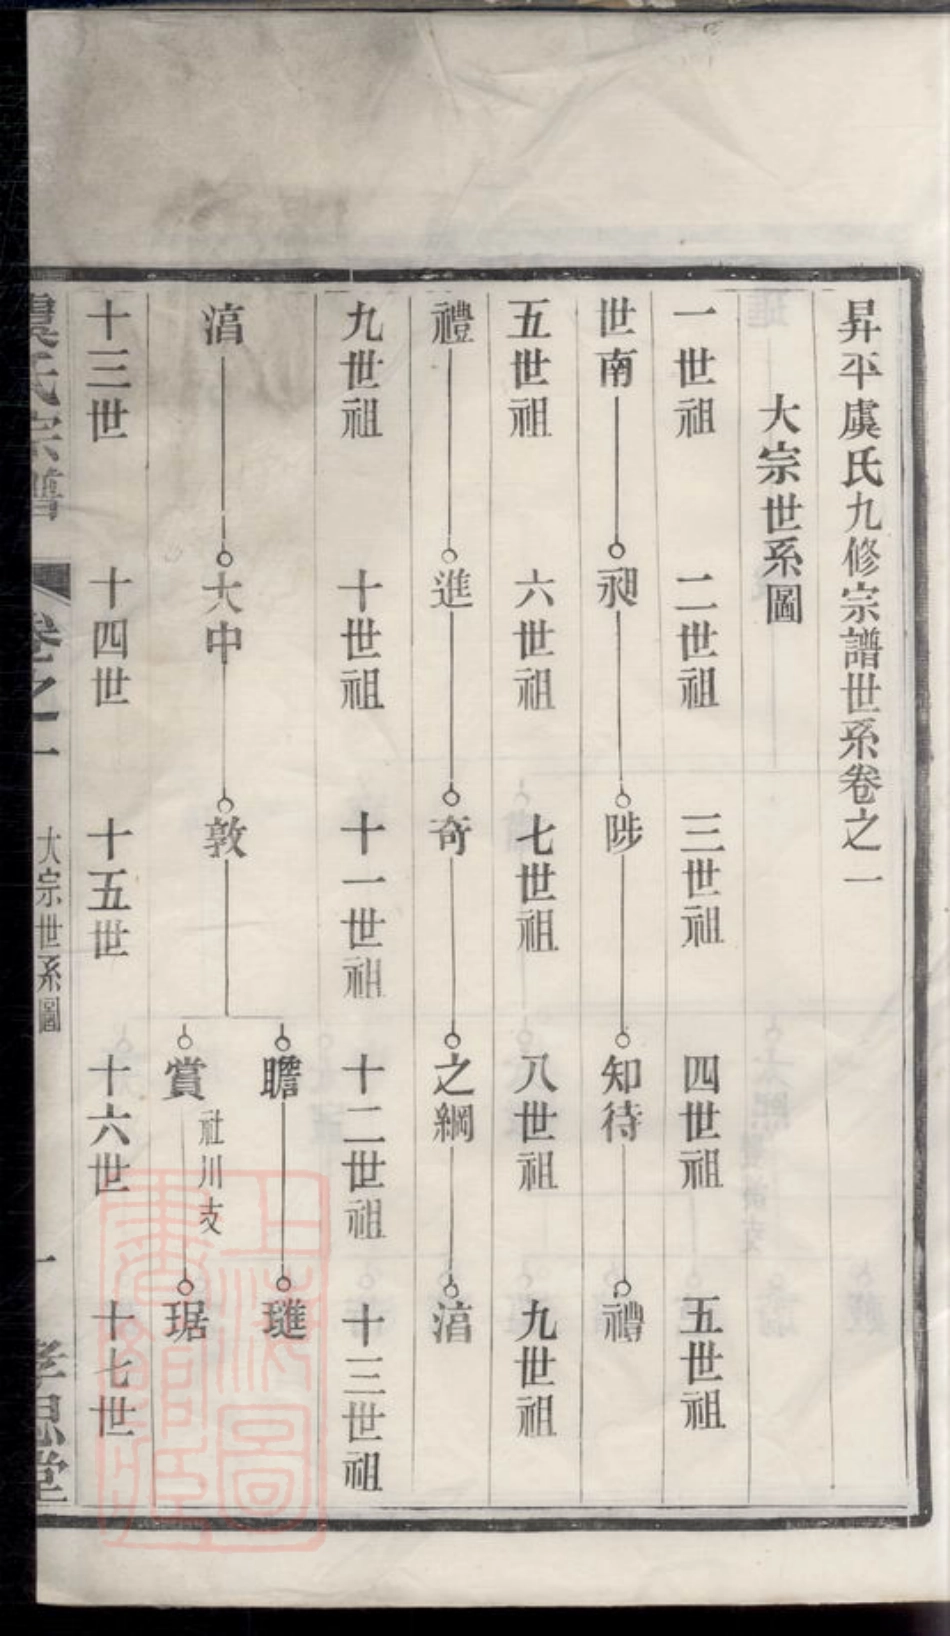 昇平虞氏九修宗譜世系卷之一
大宗世系圖
一世祖 二世祖 三世祖 四世祖 五世祖
世南 昶 陟 知待 禮
五世祖 六世祖 七世祖 八世祖 九世祖
禮 進 奇 之綱 滈
九世祖 十世祖 十一世祖 十二世祖 十三世祖
瞻 璡
滈 大中 敦
賞 社川支 琚
十三世 十四世 十五世 十六世 十七世
虞氏宗譜 卷之一 大宗世系圖 一 孝思堂
上海圖書館藏